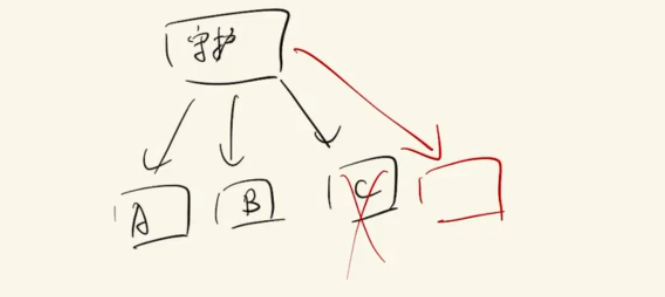 守护
A
B
C